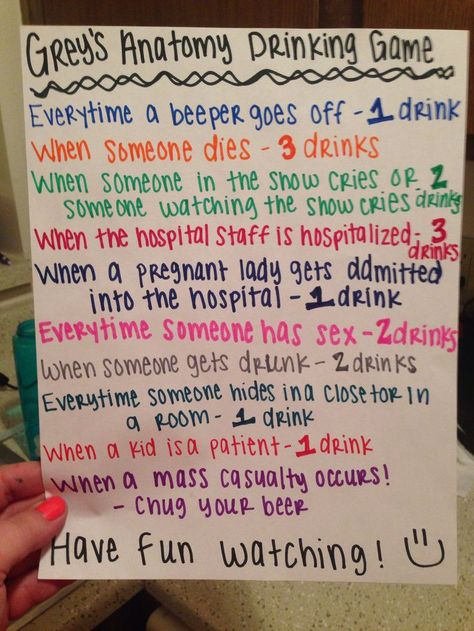 Grey's Anatomy Drinking Game
Everytime a beeper goes off - 1 drink
When someone dies - 3 drinks
When someone in the show cries or 2
someone watching the show cries drinks
When the hospital staff is hospitalized - 3
drinks
When a pregnant lady gets admitted
into the hospital - 1 drink
Everytime someone has sex - 2 drinks
When someone gets drunk - 2 drinks
Everytime someone hides in a closet or in
a room - 1 drink
When a kid is a patient - 1 drink
When a mass casualty occurs!
- Chug your beer
Have fun watching!